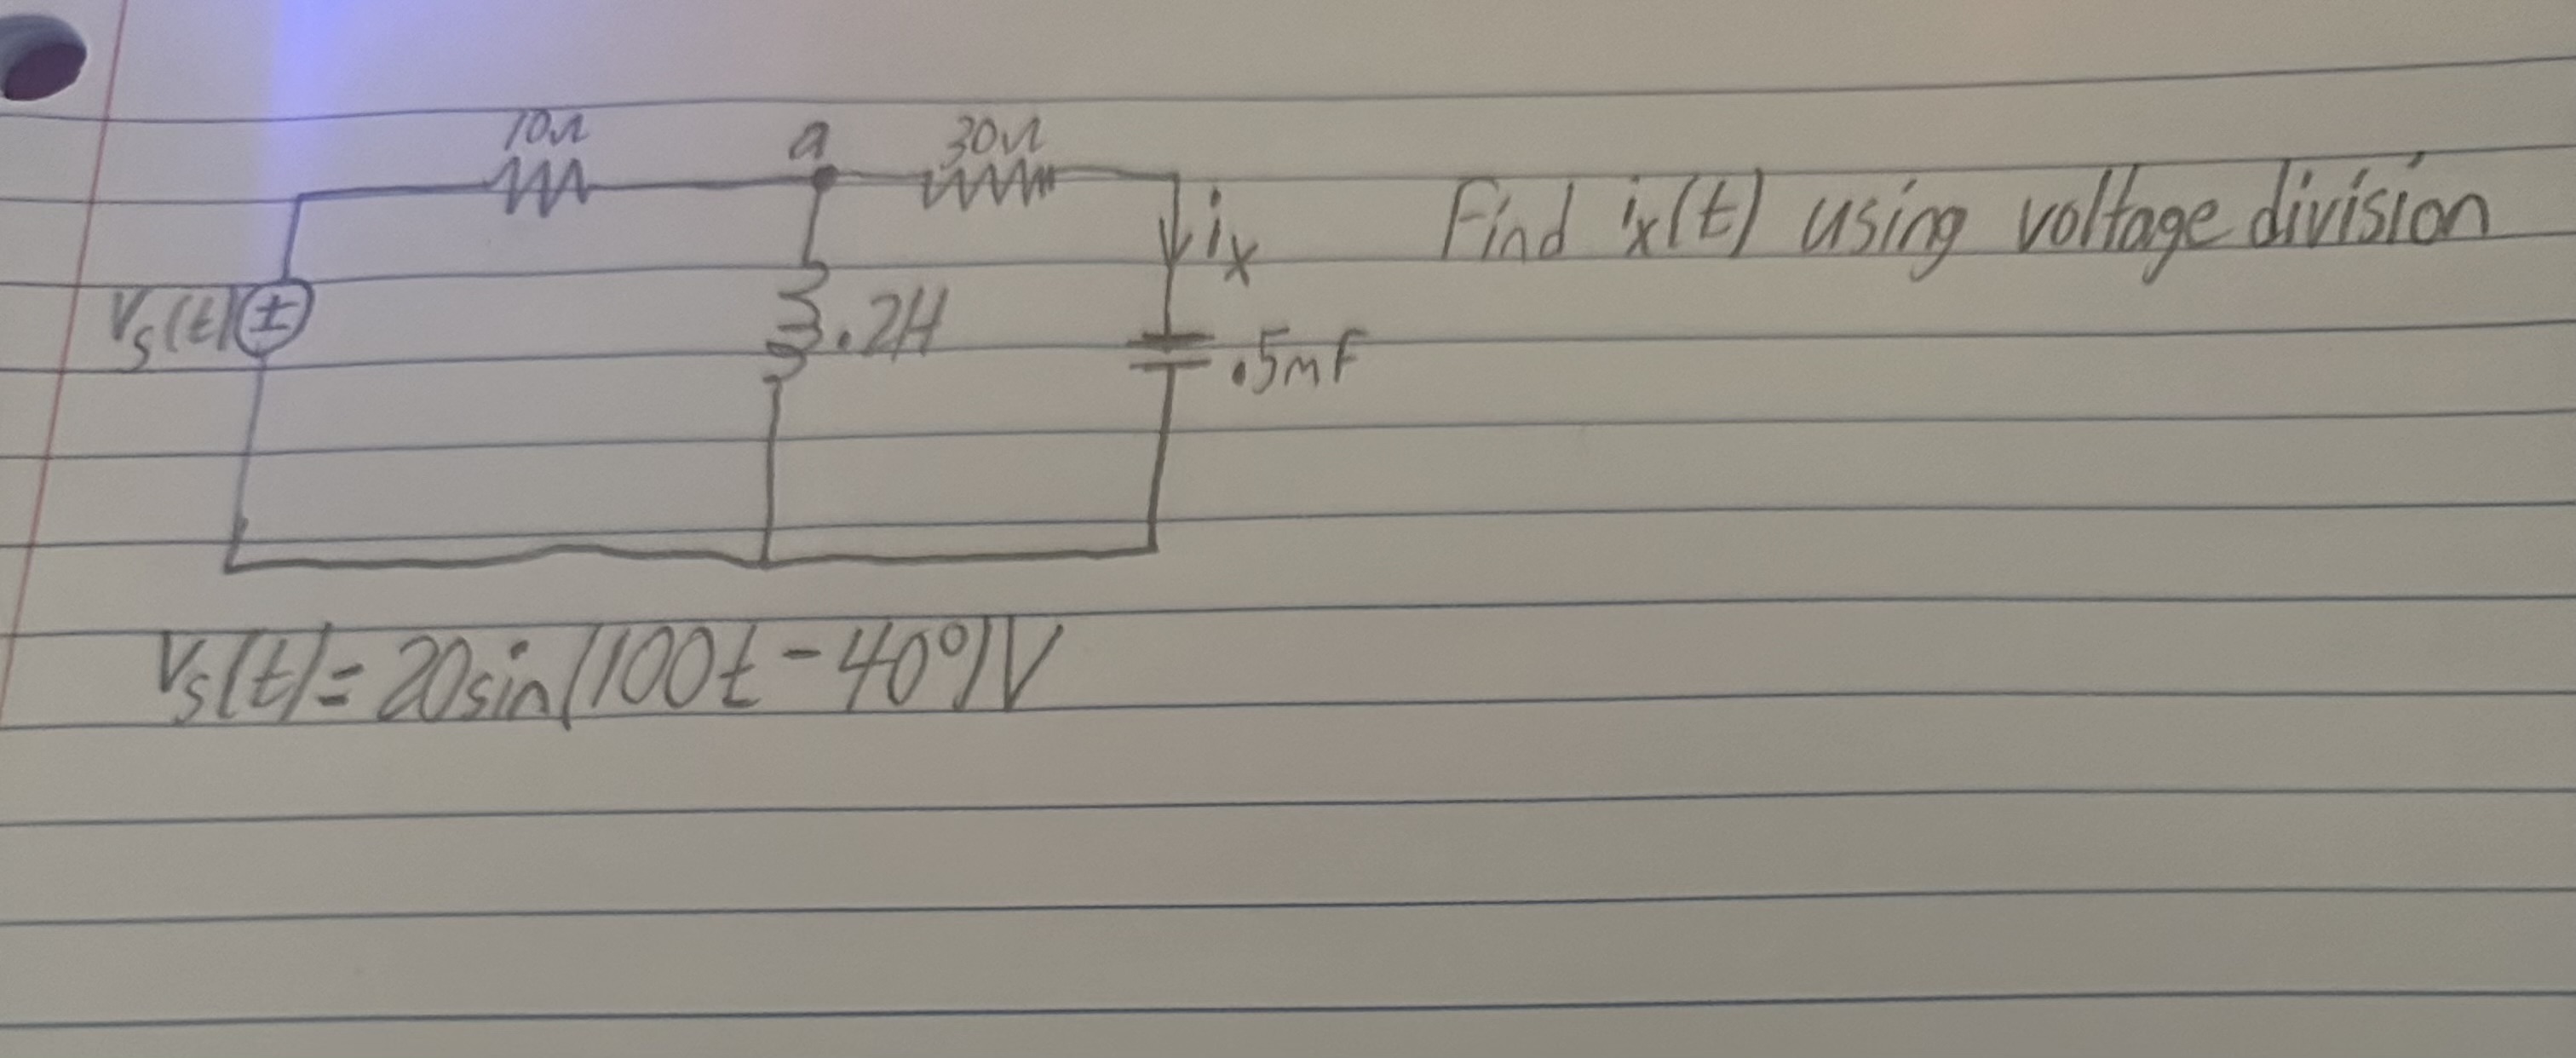 10Ω
a
30Ω
ix
Find ix(t) using voltage division
Vs(t)
±
.2H
.5mF
Vs(t)= 20sin(100t - 40°)V